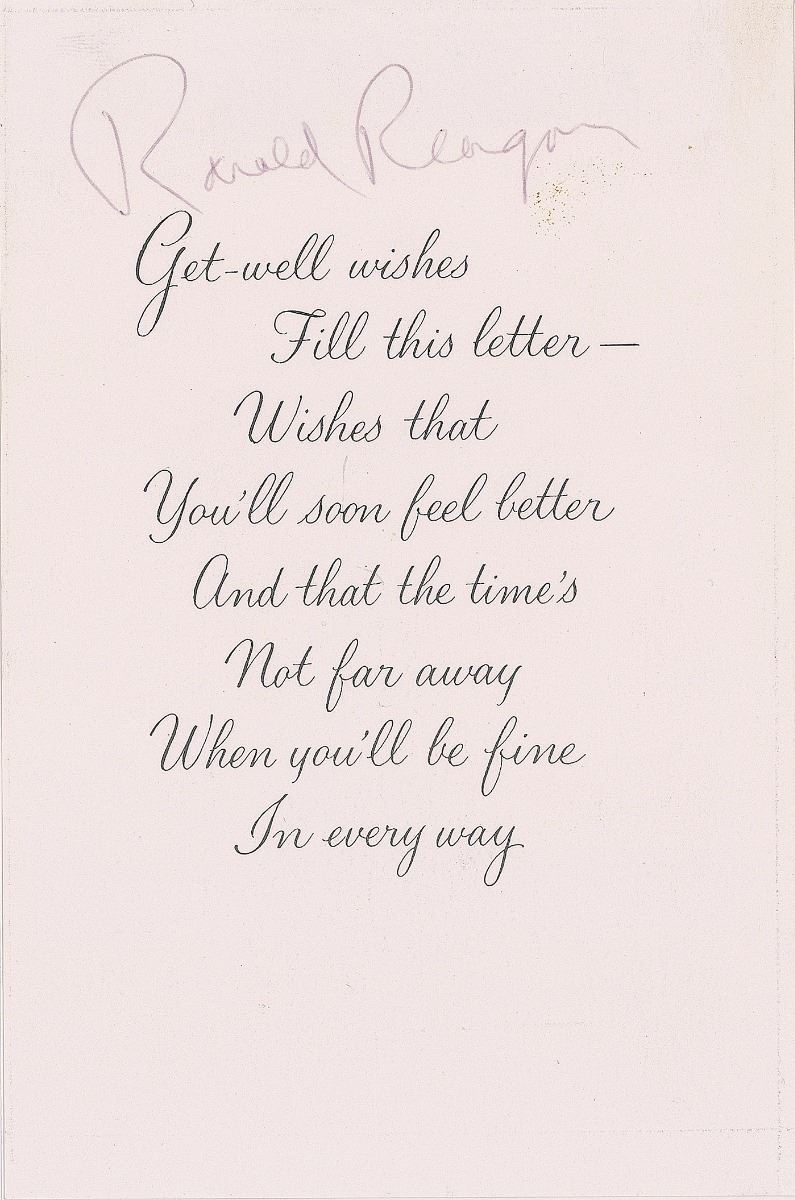 Ronald Reagan
Get-well wishes
Fill this letter —
Wishes that
You'll soon feel better
And that the time's
Not far away
When you'll be fine
In every way